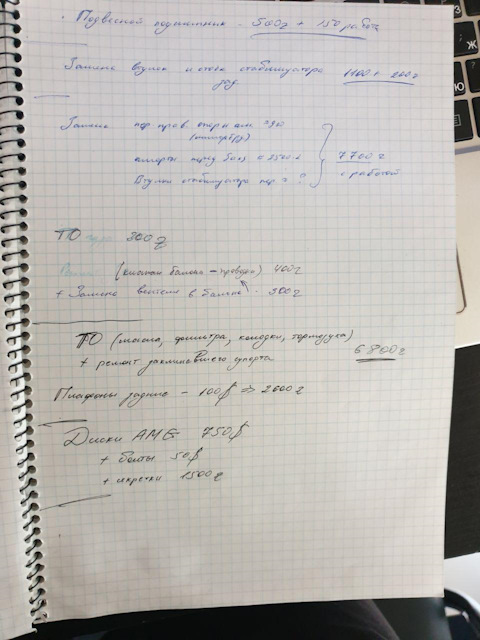 Подвесной подшипник - 500г + 150 работа
Замена втулок и стоек стабилизатора 1100 + 200г
Замена пер прав. опор и ам.
аморты перед 50.03 = 2500 г
Втулки стабилизатора пер = ?
7700г
с работой
ТО 300г
(клапан бачка - провода) 400г
+ Замена в бачке - 300г
ТО (масла, фильтра, колодки, тормозуха)
+ ремонт заклинившего супорта
6800г
Плафоны задние - 100$ => 2600г
Диски AMG 750$
+ болты 50$
+ секретки 1500г
Ж